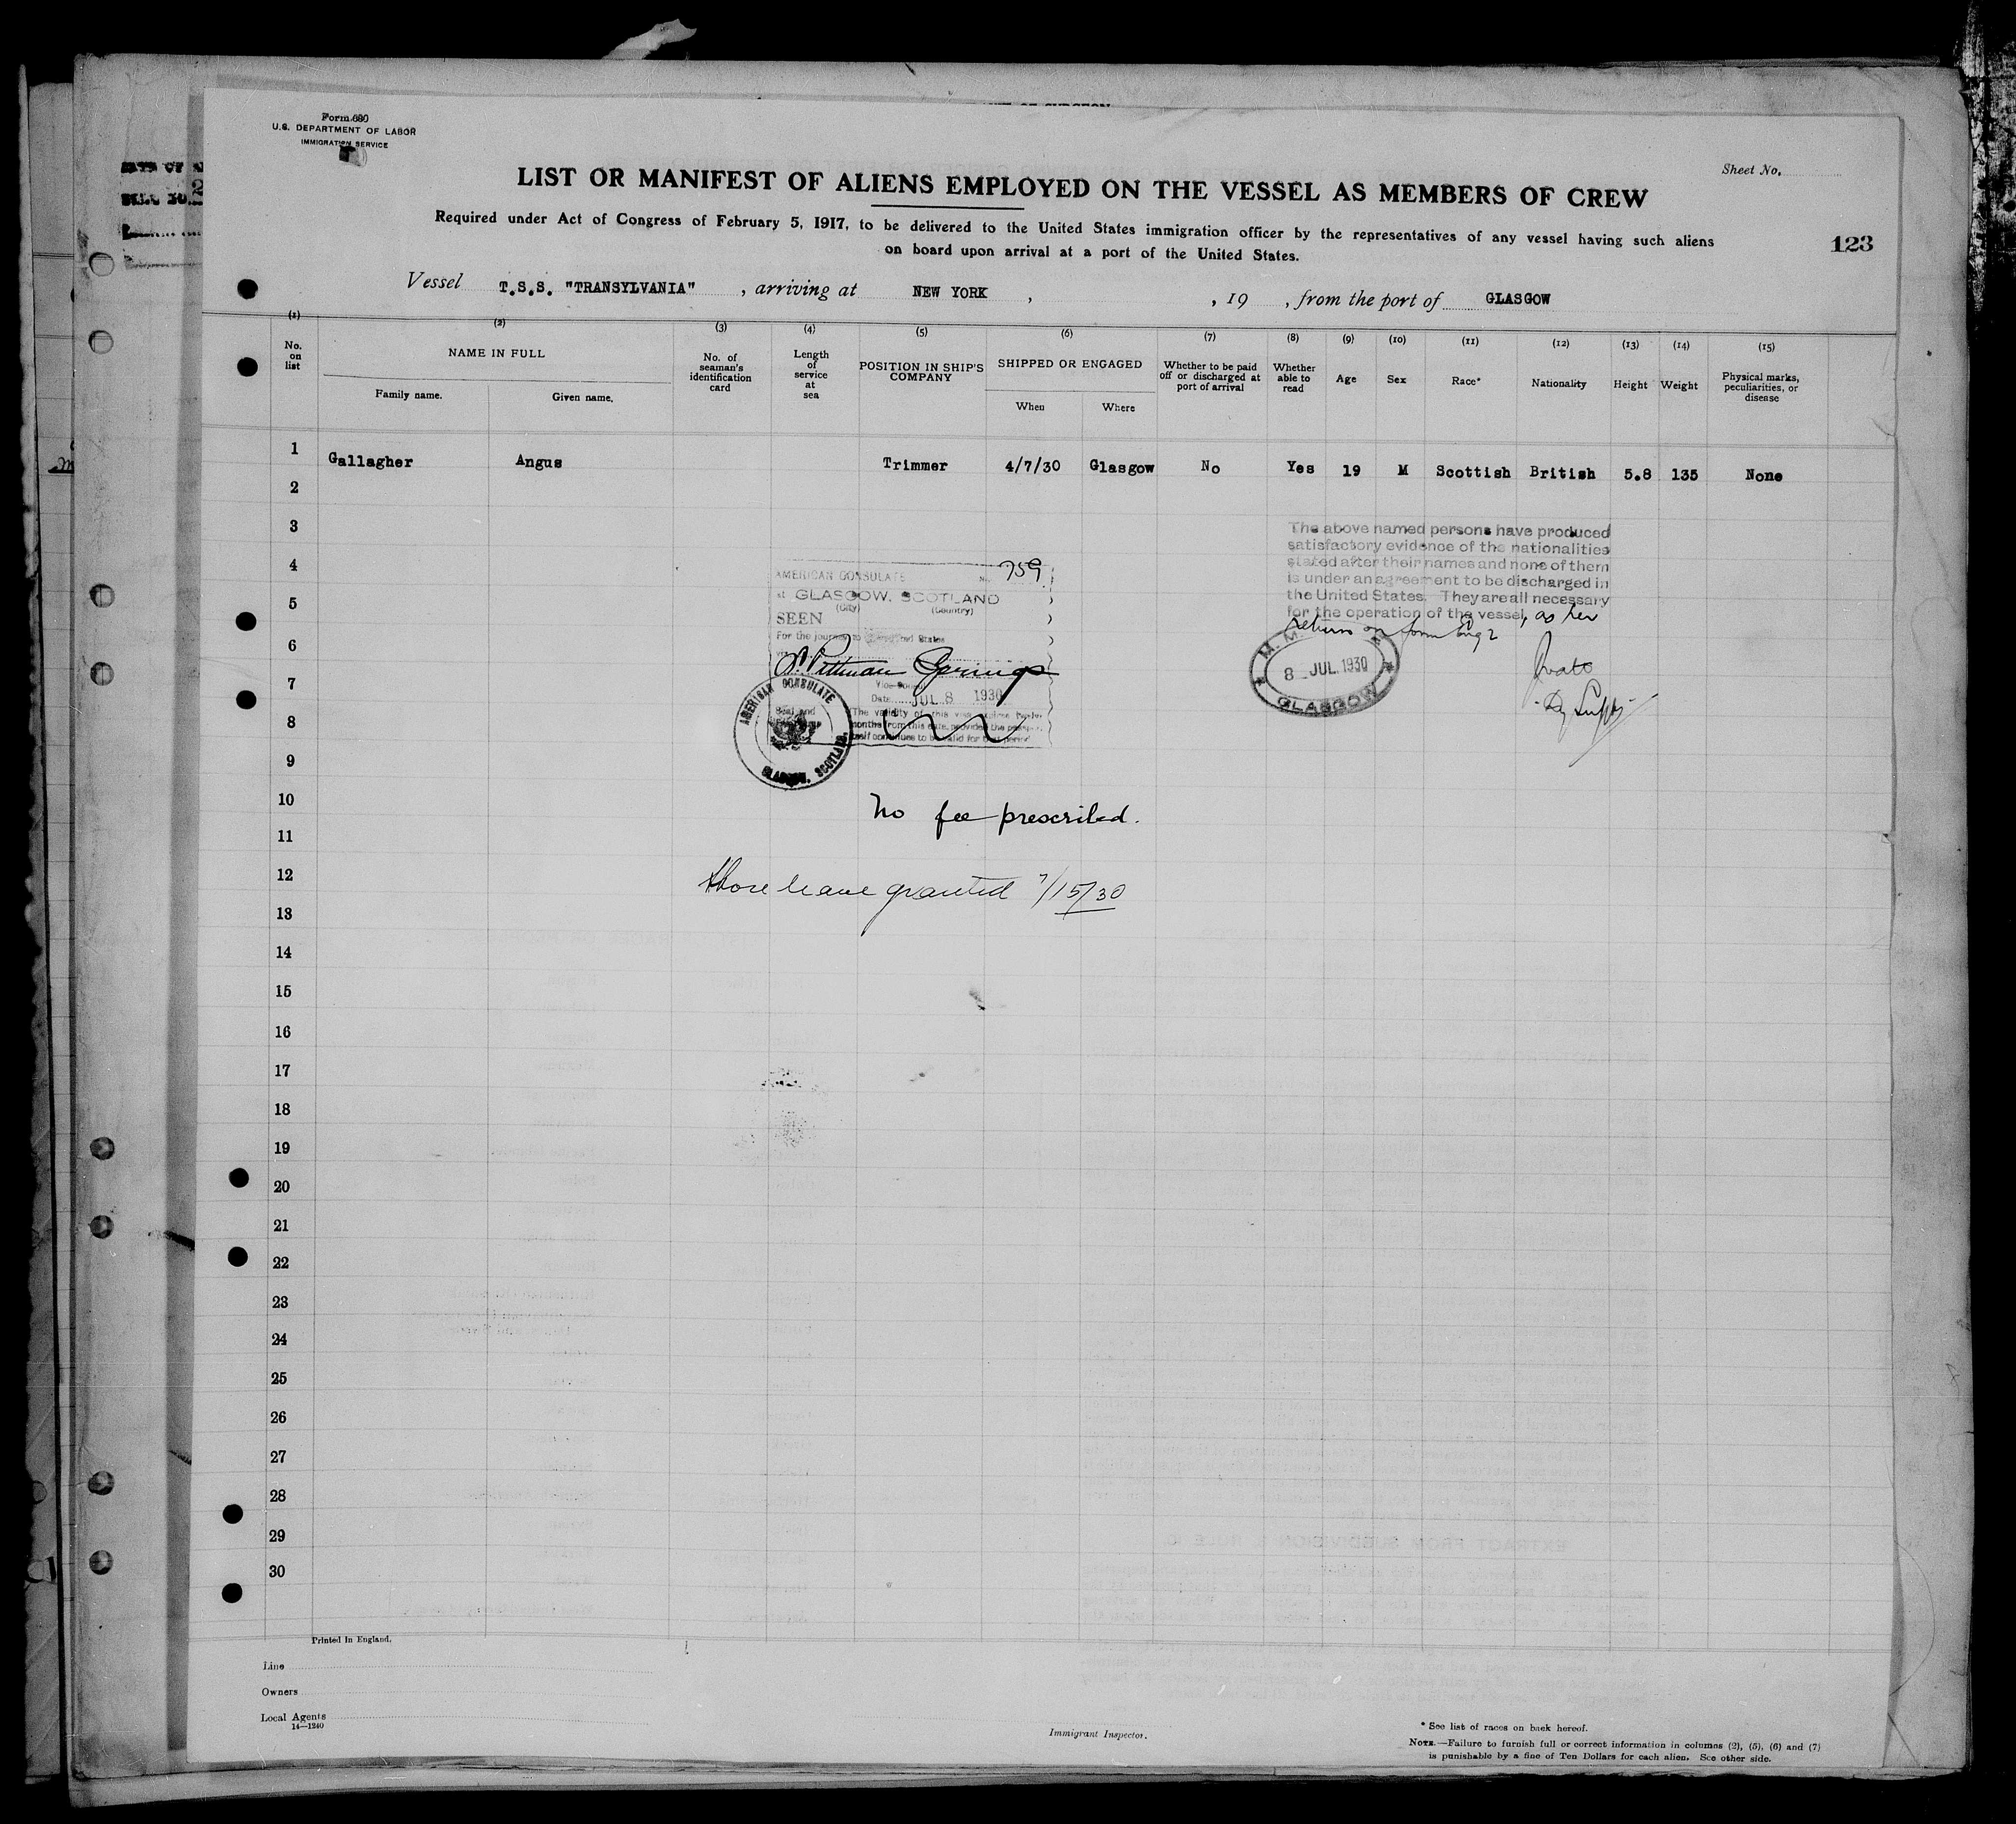 Form 680
U.S. DEPARTMENT OF LABOR
IMMIGRATION SERVICE
Sheet No.
LIST OR MANIFEST OF ALIENS EMPLOYED ON THE VESSEL AS MEMBERS OF CREW
Required under Act of Congress of February 5, 1917, to be delivered to the United States immigration officer by the representatives of any vessel having such aliens
on board upon arrival at a port of the United States.
123
Vessel T.S.S. "TRANSYLVANIA" , arriving at NEW YORK , , 19 , from the port of GLASGOW
(1) (2) (3) (4) (5) (6) (7) (8) (9) (10) (11) (12) (13) (14) (15)
No. on list
NAME IN FULL
Family name. Given name.
No. of seaman's identification card
Length of service at sea
POSITION IN SHIP'S COMPANY
SHIPPED OR ENGAGED
When Where
Whether to be paid off or discharged at port of arrival
Whether able to read
Age
Sex
Race*
Nationality
Height
Weight
Physical marks, peculiarities, or disease
1 Gallagher Angus Trimmer 4/7/30 Glasgow No Yes 19 M Scottish British 5.8 135 None
2
3
4
5
6
7
8
9
10
11
12
13
14
15
16
17
18
19
20
21
22
23
24
25
26
27
28
29
30
AMERICAN CONSULATE No. 759
at GLASGOW, SCOTLAND
(City) (Country)
SEEN
For the journey to United States
Pittman Springs
Vice Consul
Date JUL 8 1930
Seal and
The validity of this visa expires twelve
months from this date, provided the
itself continues to be valid for that period
AMERICAN CONSULATE
GLASGOW, SCOTLAND
The above named persons have produced
satisfactory evidence of the nationalities
stated after their names and none of them
is under an agreement to be discharged in
the United States. They are all necessary
for the operation of the vessel, as her
return on form Eng 2
M. M.
8 JUL 1930
GLASGOW
No fee prescribed.
Shore leave granted 7/15/30
Printed in England.
Line
Owners
Local Agents
14—1240
Immigrant Inspector.
* See list of races on back hereof.
NOTE.—Failure to furnish full or correct information in columns (2), (5), (6) and (7)
is punishable by a fine of Ten Dollars for each alien. See other side.